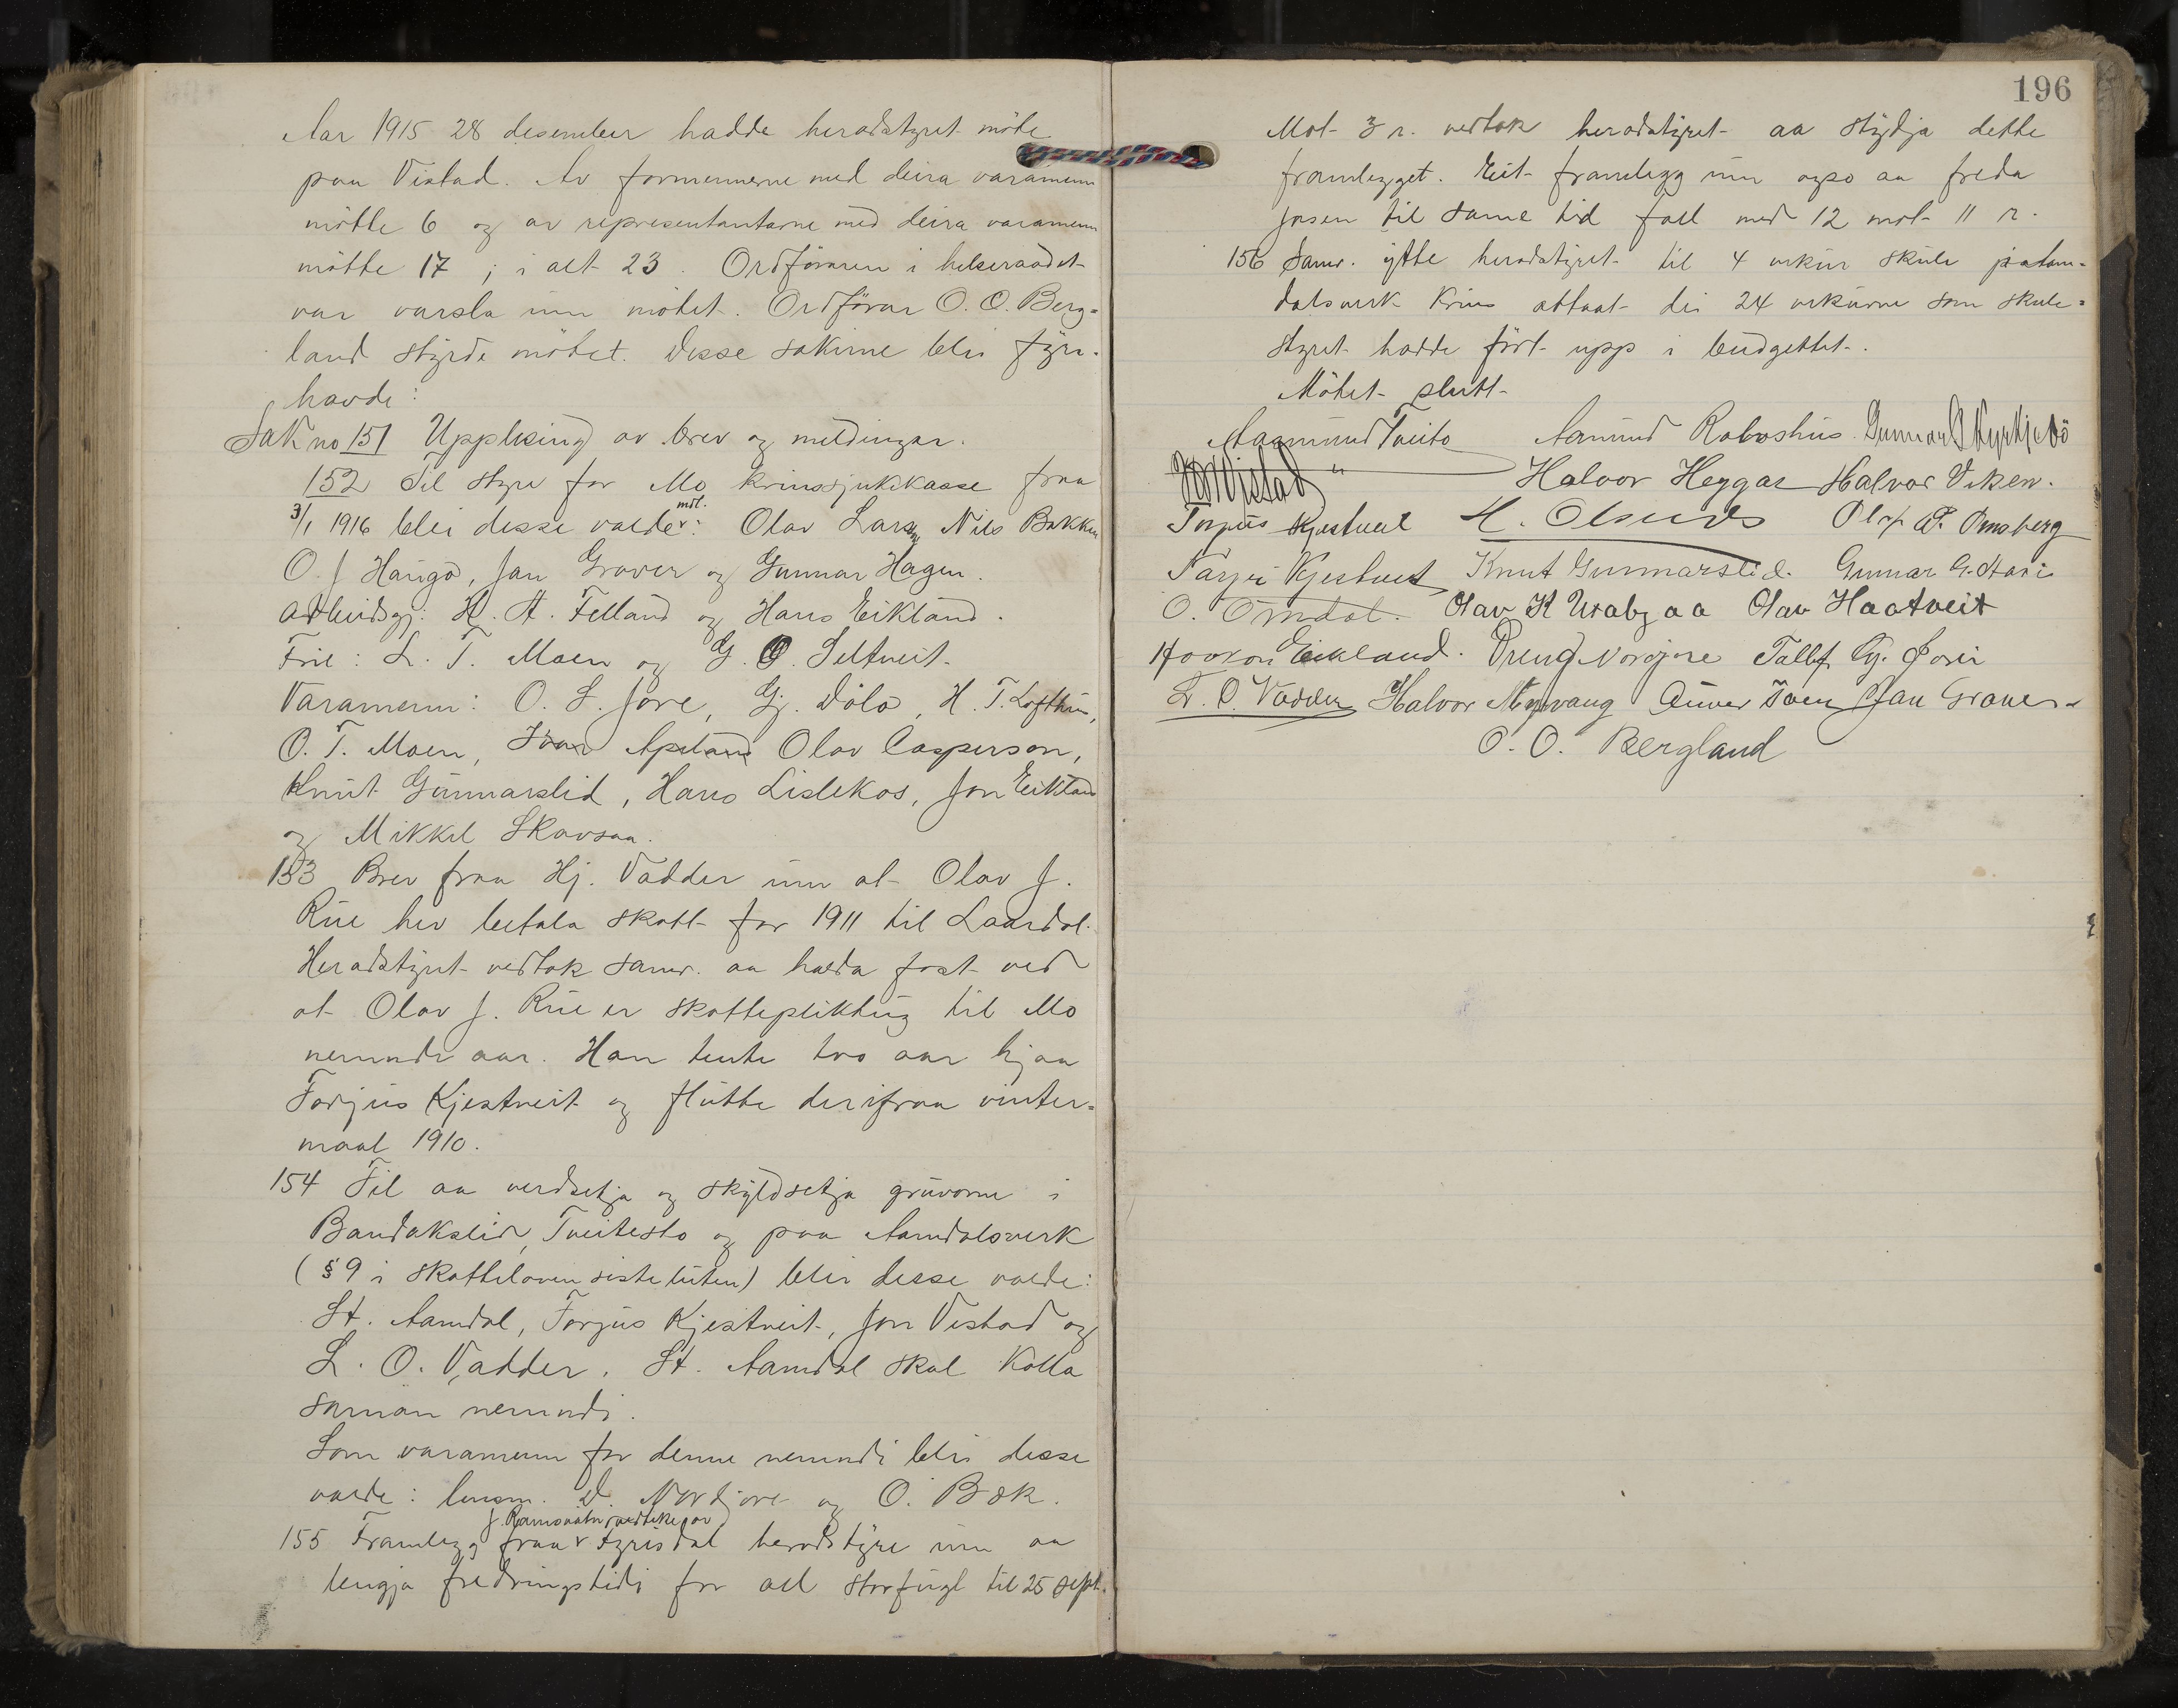 Aar 1915 28 desember hadde heradstyret møte
paa Vistad. Av formennerne med deira varamenn
møtte 6 og av representantarne med deira varamenn
møtte 17; i alt 23. Ordføraren i helseraadet
var varsla um møtet. Ordførar O. O. Berg-
land styrde møtet. Desse sakirne blei fyre-
havde:
Sak no 151 Upplesing av brev og meldingar.
152 Til styre for Mo krinssjukekasse fraa
3/1 1916 blei desse valde: Olav Larsen, Nils Bakken
mdl.
O. J Haugo, Jan Graver og Gunnar Hagen.
Arbeidsgj: H. A. Felland og Hans Eikland.
Friv: L. T. Moen og G. O. Seltveit.
Varamenn: O. S. Jore, Gj. Dølo, H. T. Lofthus,
O. T. Moen, Ivar Apeland Olav Casperson,
Knut Gunnarslid, Hans Lislekos, Jon Eikland
og Mikkel Skavsaa.
153 Brev fraa Hj. Vadder um at Olav J.
Rue hev betala skatt for 1911 til Laardal.
Heradstyret vedtok samr. aa halda fast ved
at Olav J. Rue er skattepliktug til Mo
nemnde aar. Han tente tvo aar hjaa
Torjus Kjestveit og flutte derifraa vinter-
maal 1910.
154 Til aa verdsetja og skyldsetja gruvorne i
Bandakslid, Tveitesto og paa Aamdalsverk
(§ 9 i skatteloven siste luten) blei desse valde:
St. Aamdal, Torjus Kjestveit, Jon Vistad og
L. O. Vadder. St. Aamdal skal kalla
saman nemndi.
Som varamenn for denne nemndi blei desse
valde: lensm. D. Nordjore og O. Bøk.
J. Ramsvatn, vedteke av
155 Framlegg fraa Fyrisdal heradstyre um aa
lengja fredningstidi for all storfugl til 25 sept.
196
Mot 3 r. vedtok heradstyret aa stydja dette
framlegget. Eit framlegg um ogso aa freda
jasen til same tid fall med 12 mot 11 r.
156 Samr. ytte heradstyret til 4 vekur skule paa Aam-
dalsverk krins attaat dei 24 vekurne som skule-
styret hadde ført upp i budgettet.
Møtet slutt
Aasmund Tveito Aamund Raboshus Gunnar S Kyrkjebø
Vistad Halvor Heggar Halvor Viken.
Torjus Kjestveit H. Olsnes Olaf P. Omsberg
Tarjei Kjestveit Knut Gunnarslid. Gunnar G. Stavi
O. Omdal. Olav K Urabjaa Olav Haatveit
Haakon Eikland. Dreng Nordjore Tallf. Gj. Josei
L. O. Vadder Halvor Myrvang Eiver Toen Jan Graver
O. O. Bergland